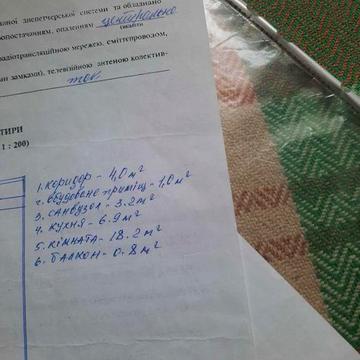 ваної диспетчерської системи та обладнано
опостачанням, опаленням центральне
радіотрансляційною мережею, сміттєпроводом,
ми замками), телевізійною антеною колектив-
ТИРИ
1 : 200)
1. Коридор - 4,0 м²
2. вбудоване приміщ - 1,0 м²
3. санвузол - 3.2 м²
4. кухня - 6.9 м²
5. кімната - 18.2 м²
6. балкон - 0.8 м²